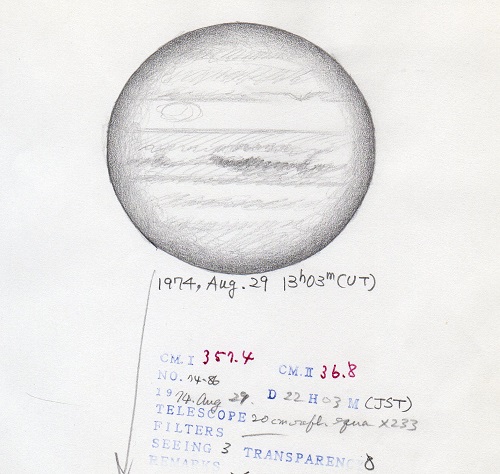 1974, Aug. 29 13h03m (UT)
CM.I 357.4 CM.II 36.8
NO. 74-86
1974. Aug 29. D 22 H 03 M (JST)
TELESCOPE 20cm X233
FILTERS
SEEING 3 TRANSPARENCY 8
REMARKS